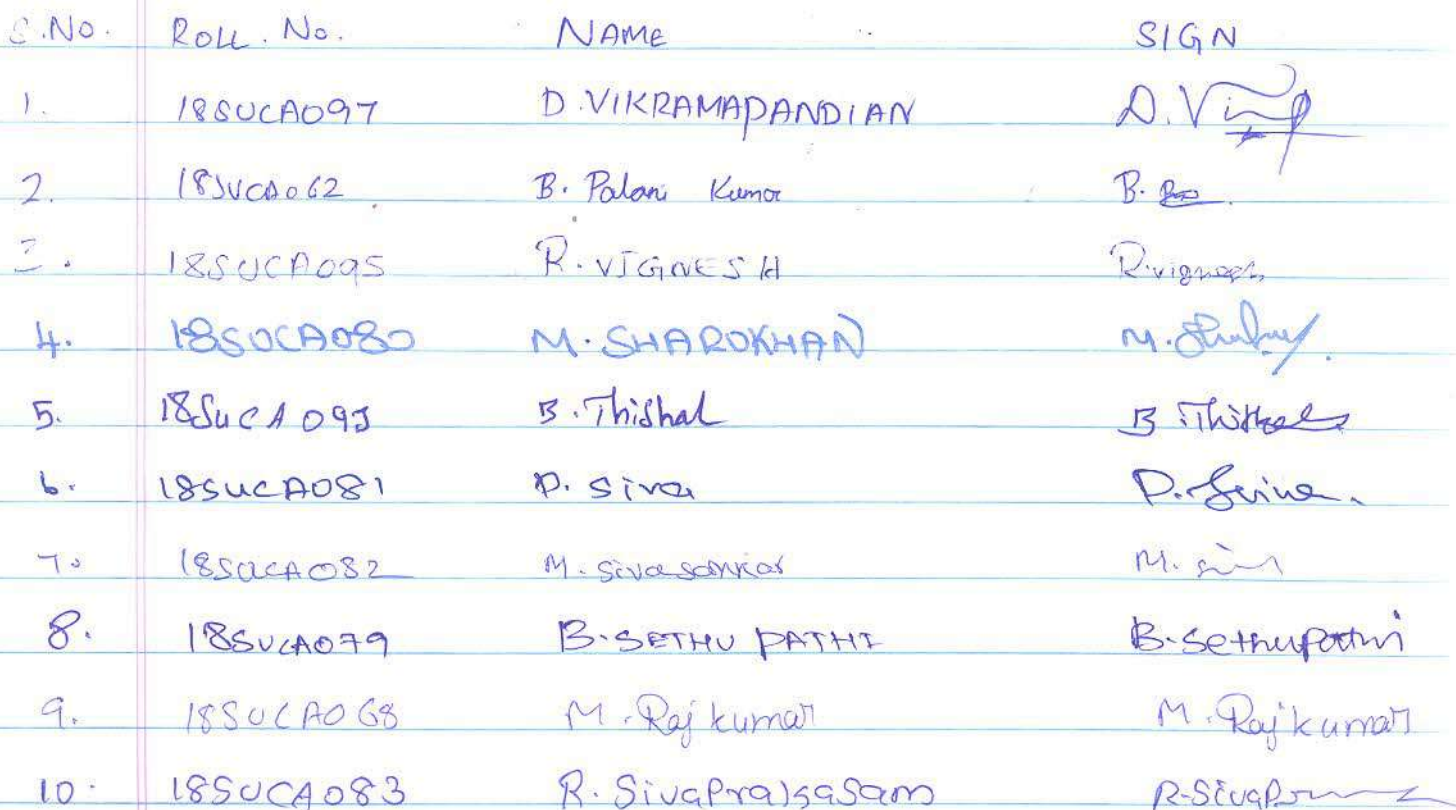 S.No. ROLL. No. NAME SIGN
1. 18SUCA097 D.VIKRAMAPANDIAN D.Vi
2. 18SUCA062 B. Palani Kumar B.
3. 18SUCA095 R.VIGNESH R.vignesh
4. 18SUCA080 M.SHAROKHAN M.
5. 18SUCA093 B.Thishal B Thishal
6. 18SUCA081 P. Siva P.
7. 18SUCA082 M. Sivasankar M.
8. 18SUCA079 B.SETHU PATHI B.Sethupathi
9. 18SUCA068 M.Rajkumar M.Rajkumar
10. 18SUCA083 R. SivaPrakasam R.SivaPr